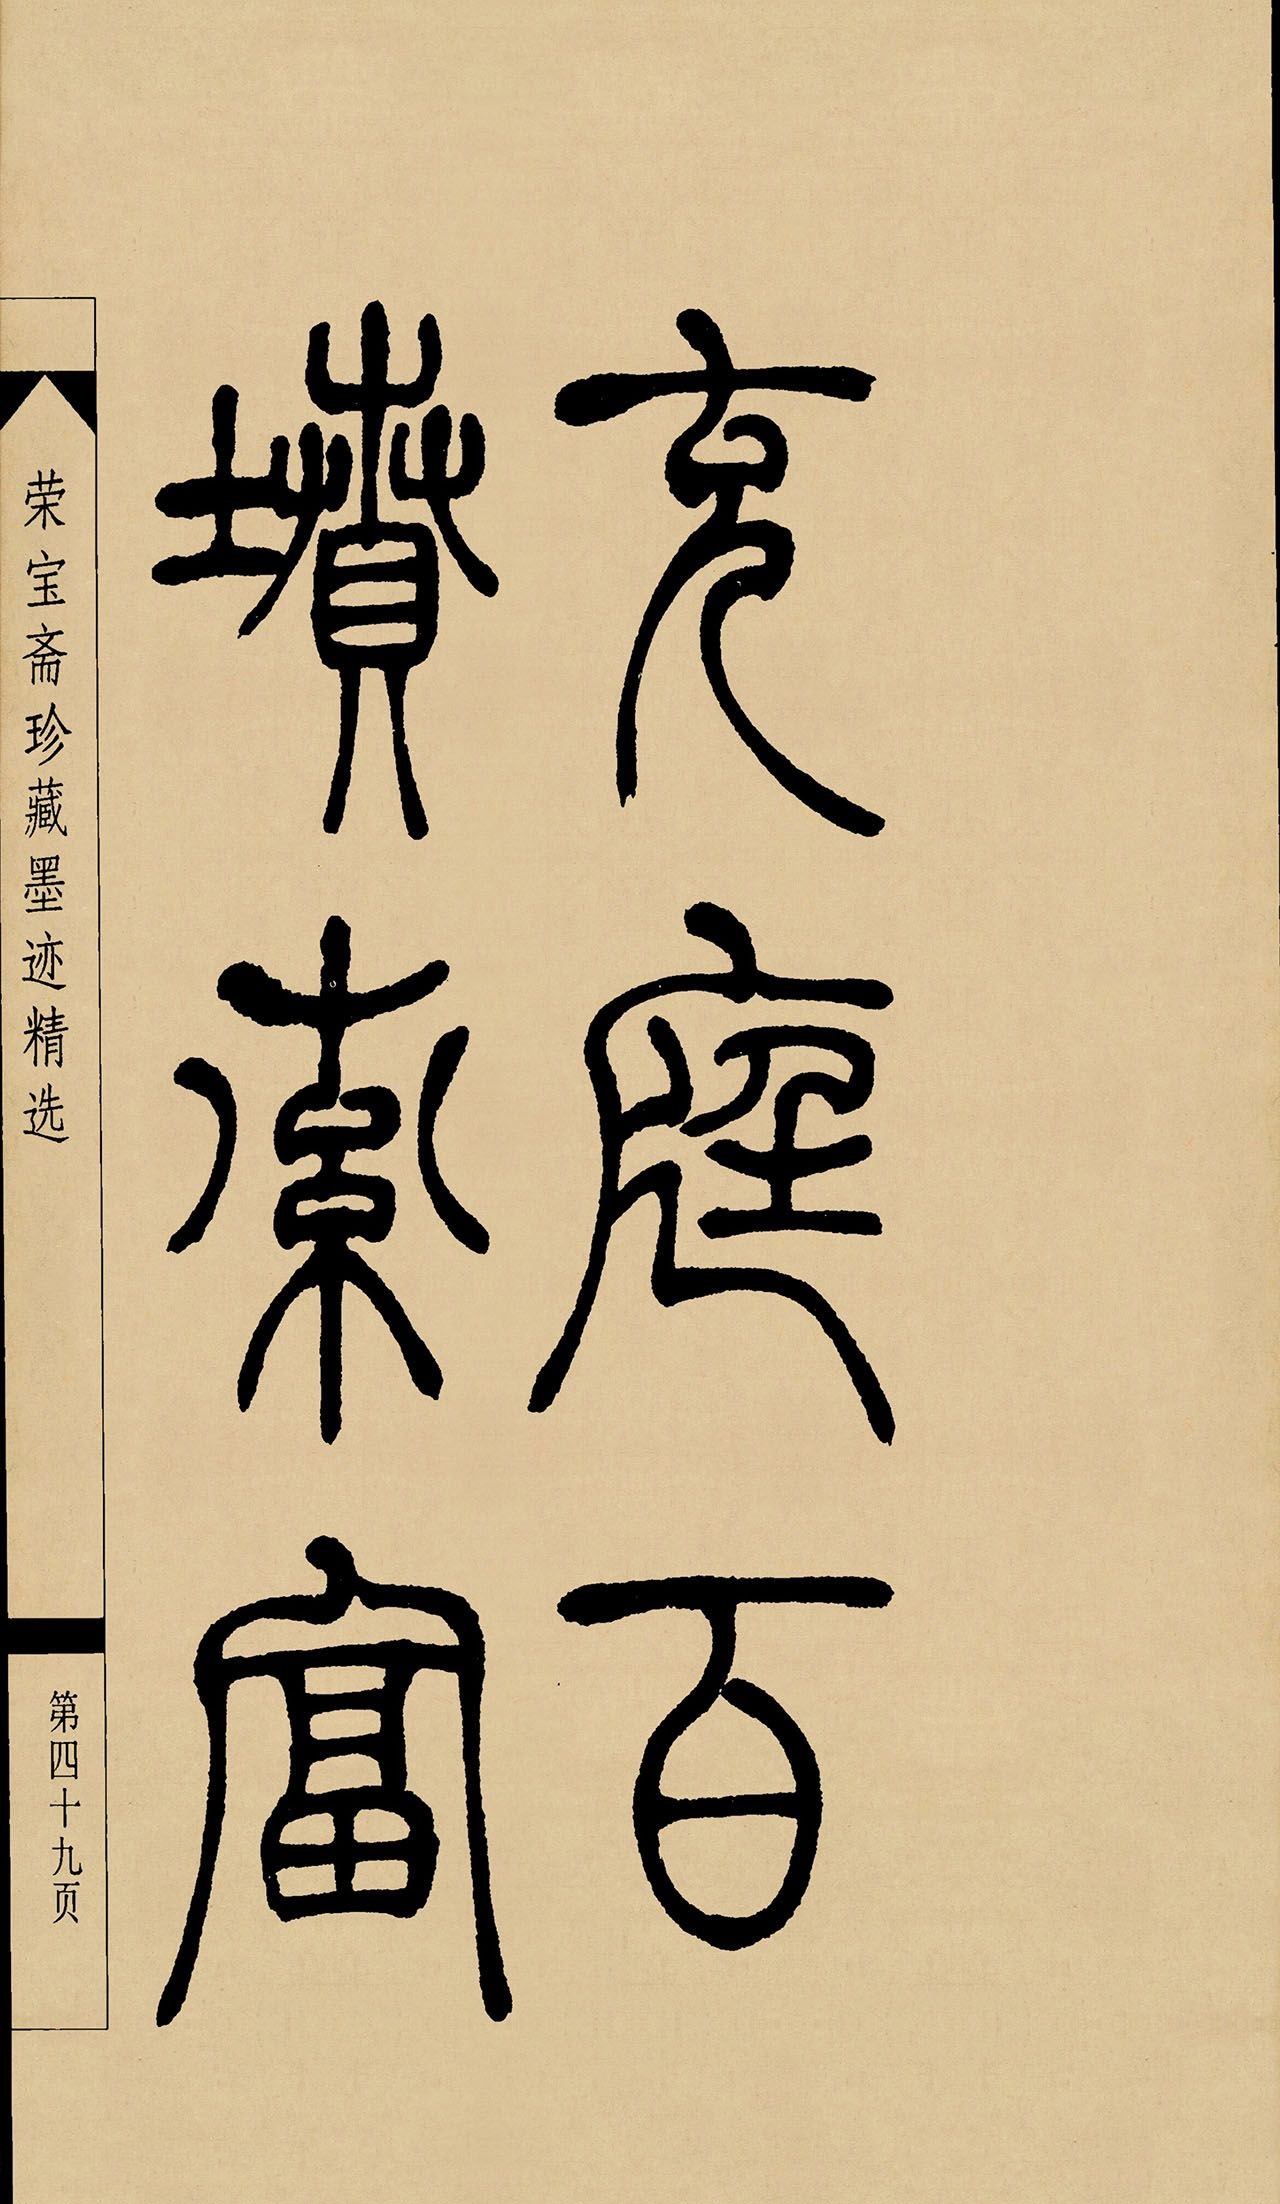 充庭百
墳索富
荣宝斋珍藏墨迹精选
第四十九页